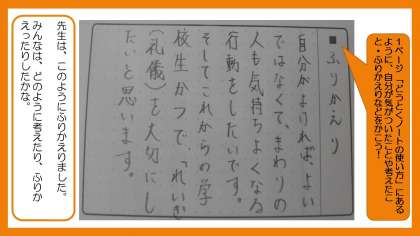 1ページ「どうとくノートの使い方」にある
ように、自分が気がついたことや考えたこ
と・ふりかえりなどをかこう！
■ふりかえり
自分がよければ、よい
ではなくて、まわりの
人も気持ちよくなる
行動をしたいです。
そしてこれからの学
校生かつで、「れいぎ
（礼儀）を大切にし
たいと思います。
先生は、このようにふりかえりました。
みんなは、どのように考えたり、ふりか
えったりしたかな。